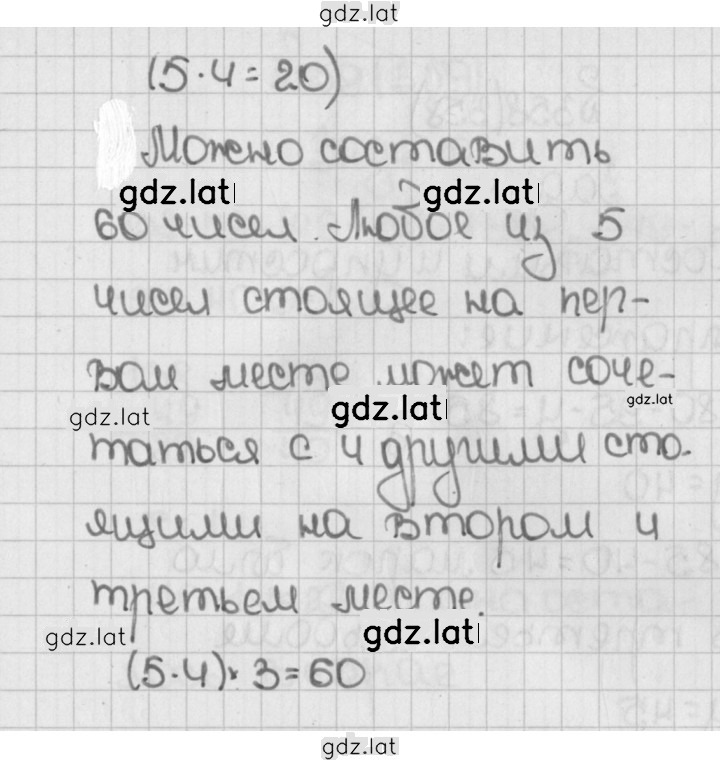 gdz.lat
(5·4=20)
Можно составить
gdz.lat gdz.lat
60 чисел. Любое из 5
чисел стоящее на пер-
вом месте может соче-
gdz.lat gdz.lat gdz.lat
таться с 4 другими сто-
ящими на втором и
третьем месте.
gdz.lat gdz.lat
(5·4)·3=60
gdz.lat